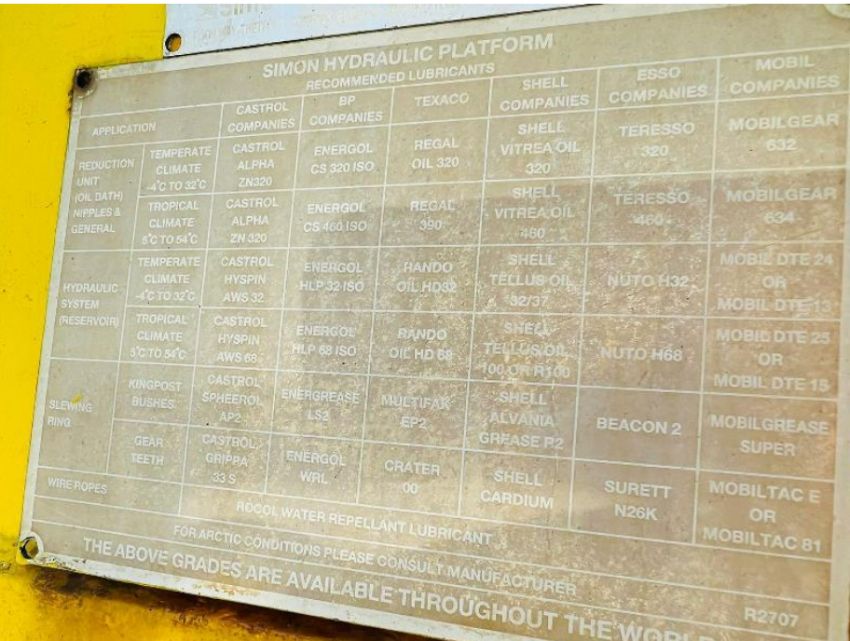 SIMON HYDRAULIC PLATFORM
RECOMMENDED LUBRICANTS
APPLICATION
CASTROL COMPANIES
BP COMPANIES
TEXACO
SHELL COMPANIES
ESSO COMPANIES
MOBIL COMPANIES
REDUCTION UNIT (OIL DATH) NIPPLES & GENERAL
TEMPERATE CLIMATE -4°C TO 32°C
CASTROL ALPHA ZN320
ENERGOL CS 320 ISO
REGAL OIL 320
SHELL VITREA OIL 320
TERESSO 320
MOBILGEAR 632
TROPICAL CLIMATE 5°C TO 54°C
CASTROL ALPHA ZN 320
ENERGOL CS 460 ISO
REGAL 390
SHELL VITREA OIL 460
TERESSO 460
MOBILGEAR 634
HYDRAULIC SYSTEM (RESERVOIR)
TEMPERATE CLIMATE -4°C TO 32°C
CASTROL HYSPIN AWS 32
ENERGOL HLP 32 ISO
RANDO OIL HD32
SHELL TELLUS OIL 32/37
NUTO H32
MOBIL DTE 24 OR MOBIL DTE 13
TROPICAL CLIMATE 5°C TO 54°C
CASTROL HYSPIN AWS 68
ENERGOL HLP 68 ISO
RANDO OIL HD 68
SHELL TELLUS OIL 100 OR R100
NUTO H68
MOBIL DTE 25 OR MOBIL DTE 15
SLEWING RING
KINGPOST BUSHES
CASTROL SPHEEROL AP2
ENERGREASE LS2
MULTIFAK EP2
SHELL ALVANIA GREASE R2
BEACON 2
MOBILGREASE SUPER
GEAR TEETH
CASTROL GRIPPA 33 S
ENERGOL WRL
CRATER 00
SHELL CARDIUM
SURETT N26K
MOBILTAC E OR MOBILTAC 81
WIRE ROPES
ROCOL WATER REPELLANT LUBRICANT
FOR ARCTIC CONDITIONS PLEASE CONSULT MANUFACTURER
R2707
THE ABOVE GRADES ARE AVAILABLE THROUGHOUT THE